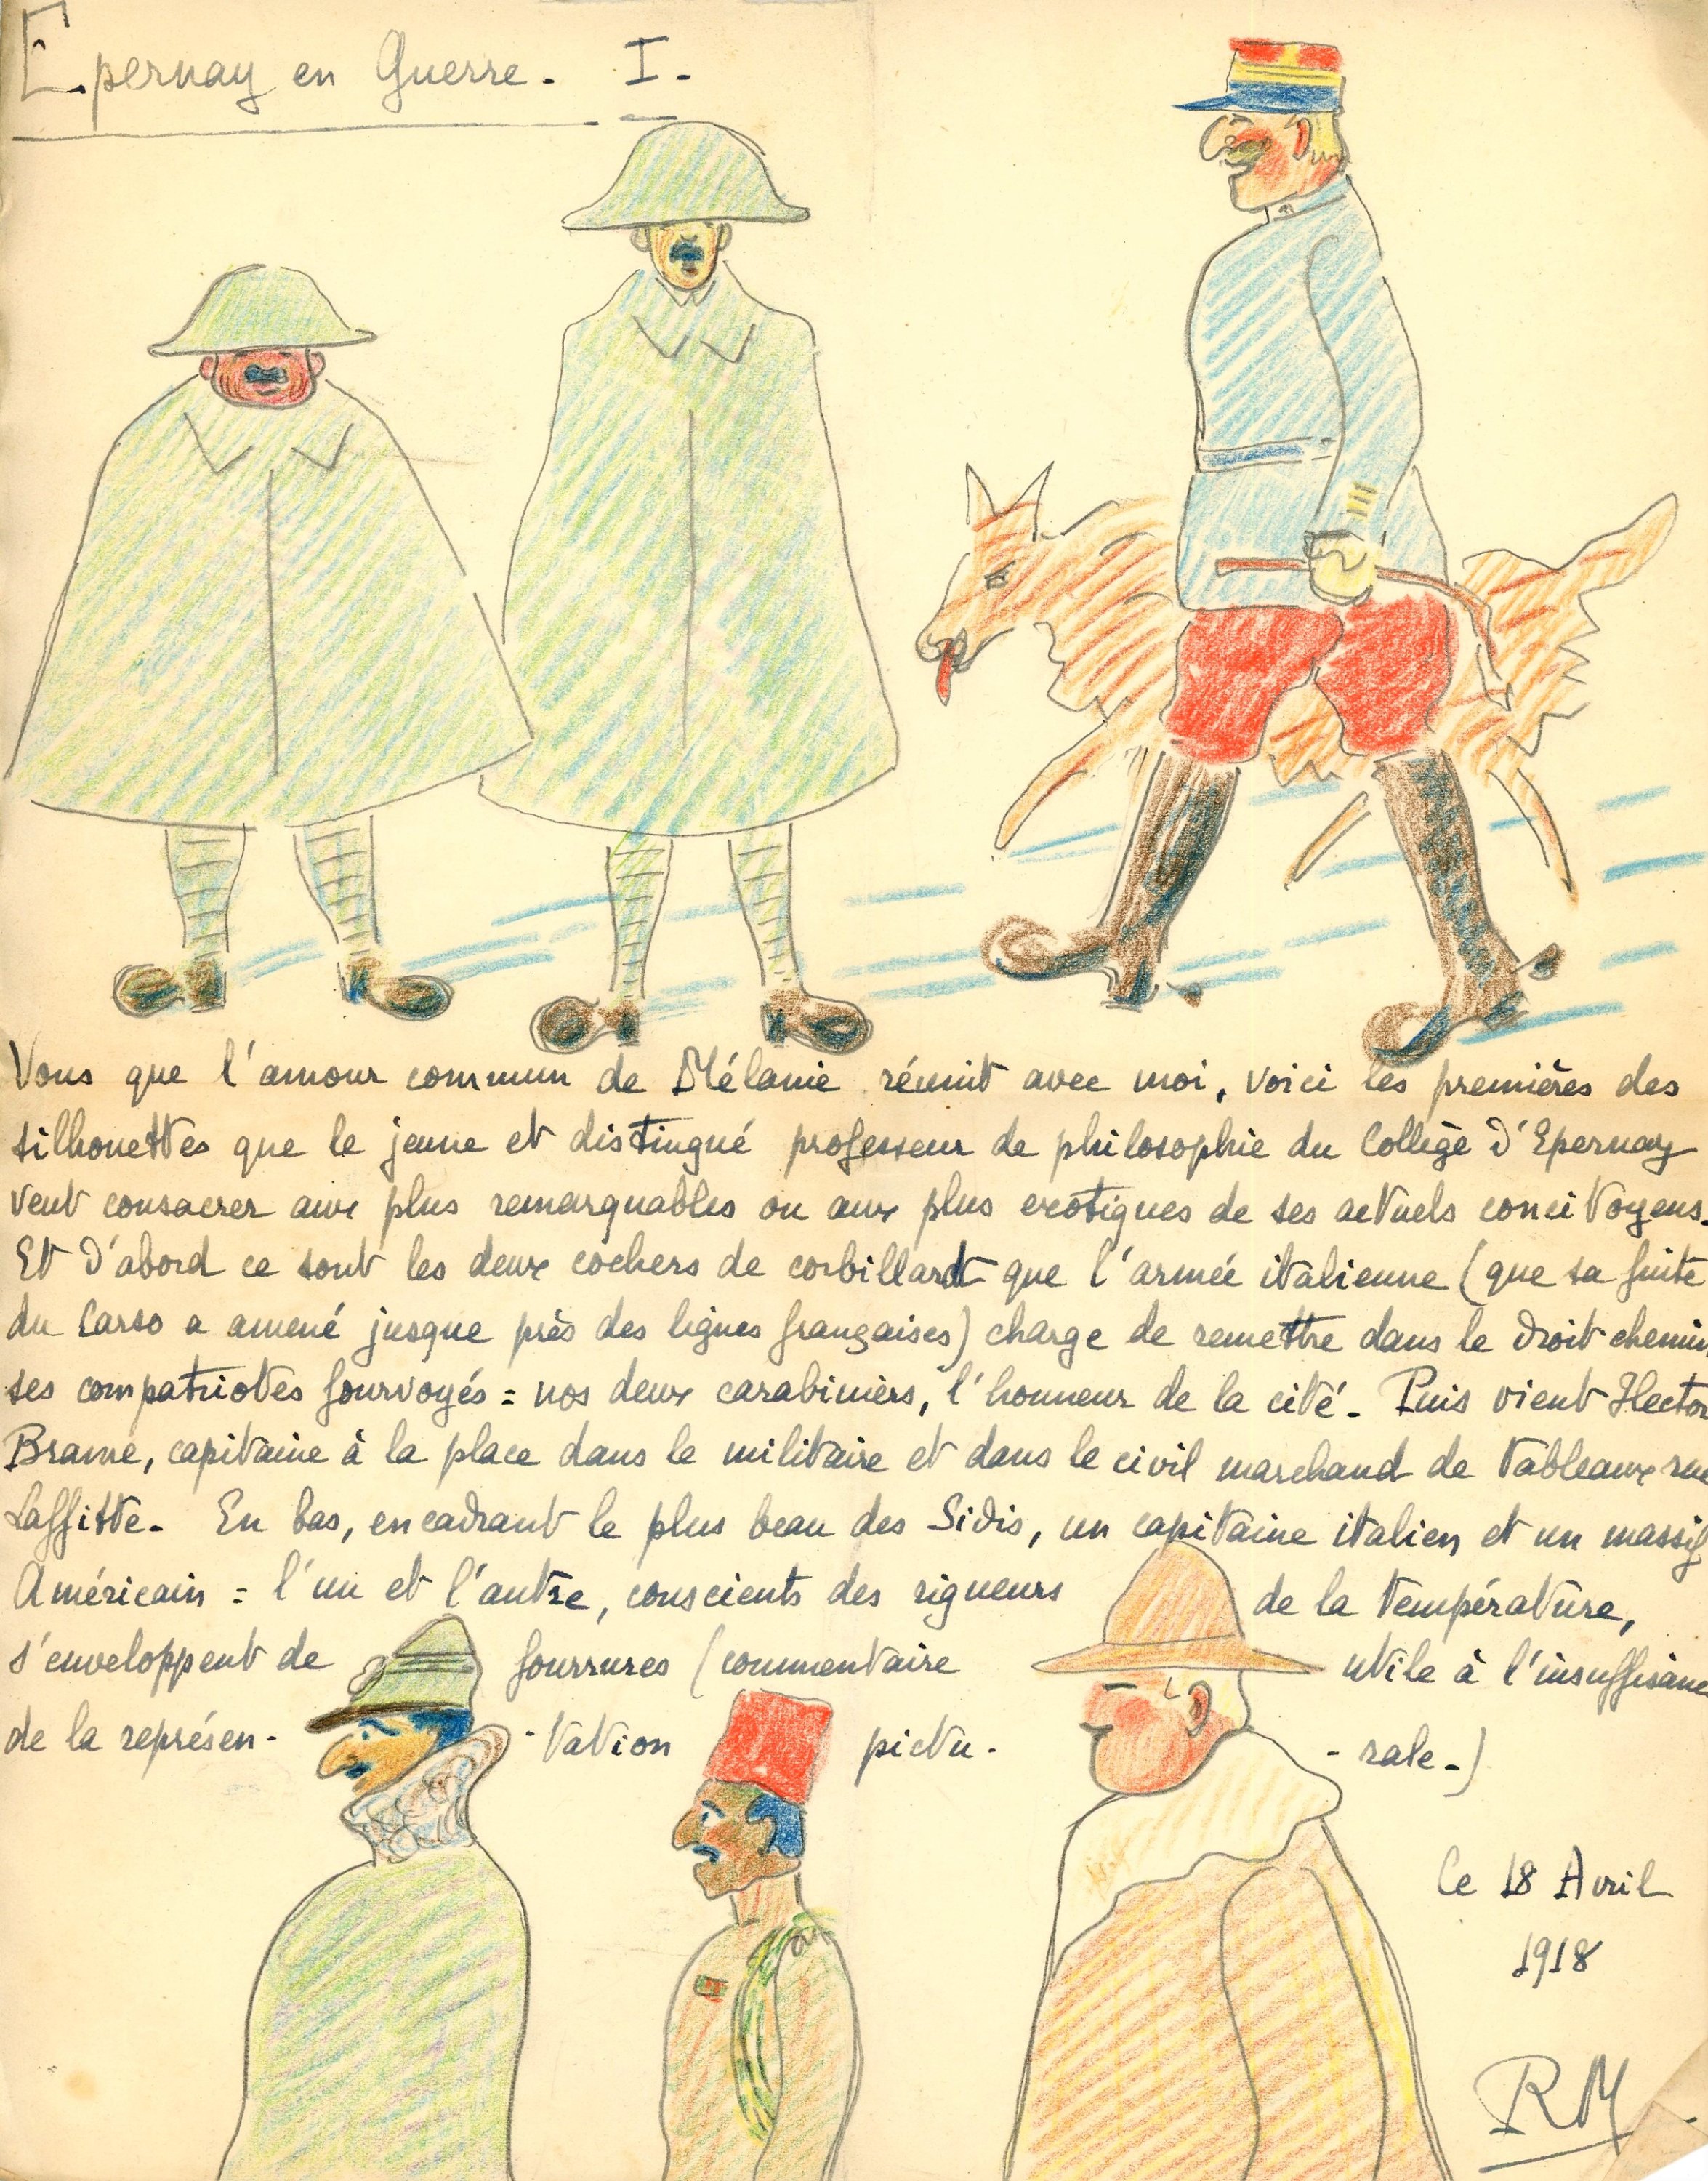 Epernay en Guerre. I.
Vous que l'amour commun de Mélanie réunit avec moi, voici les premières des
silhouettes que le jeune et distingué professeur de philosophie du Collège d'Epernay
veut consacrer aux plus remarquables ou aux plus exotiques de ses actuels concitoyens.
Et d'abord ce sont les deux cochers de corbillard que l'armée italienne (que sa fuite
du Carso a amené jusque près des lignes françaises) charge de remettre dans le droit chemin
ses compatriotes fourvoyés = nos deux carabiniers, l'honneur de la cité. Puis vient Hector
Brame, capitaine à la place dans le militaire et dans le civil marchand de tableaux rue
Laffitte. En bas, encadrant le plus beau des Sidis, un capitaine italien et un massif
Américain = l'un et l'autre, conscients des rigueurs de la température,
s'enveloppent de fourrures (commentaire utile à l'insuffisance
de la représen- -tation pictu- -rale.)
Ce 18 Avril
1918
RM